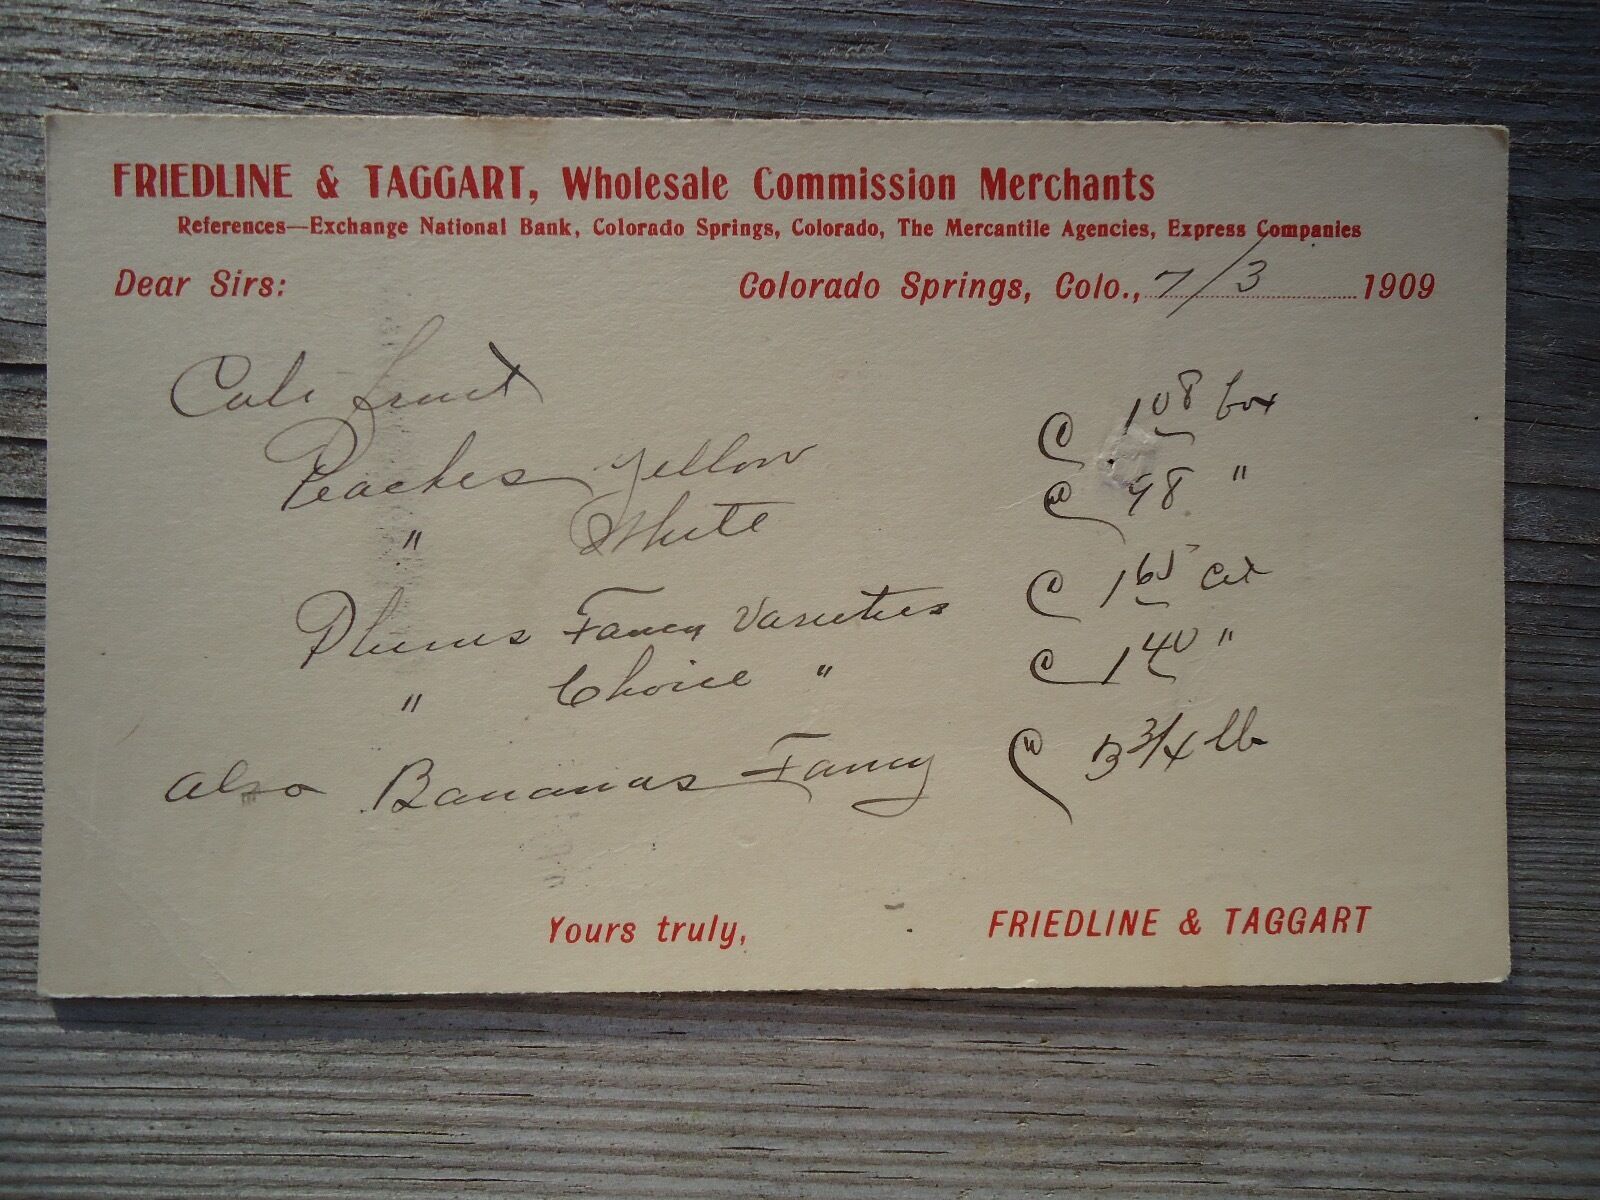 FRIEDLINE & TAGGART, Wholesale Commission Merchants
References—Exchange National Bank, Colorado Springs, Colorado, The Mercantile Agencies, Express Companies
Dear Sirs: Colorado Springs, Colo., 7/3 1909
Cali fruit
Peaches Yellow @ 1 08 box
" White @ 98 "
Plums Fancy Varieties @ 1 65 Crt
" Choice " @ 1 40 "
also Bananas Fancy @ 3 3/4 lb
Yours truly, FRIEDLINE & TAGGART